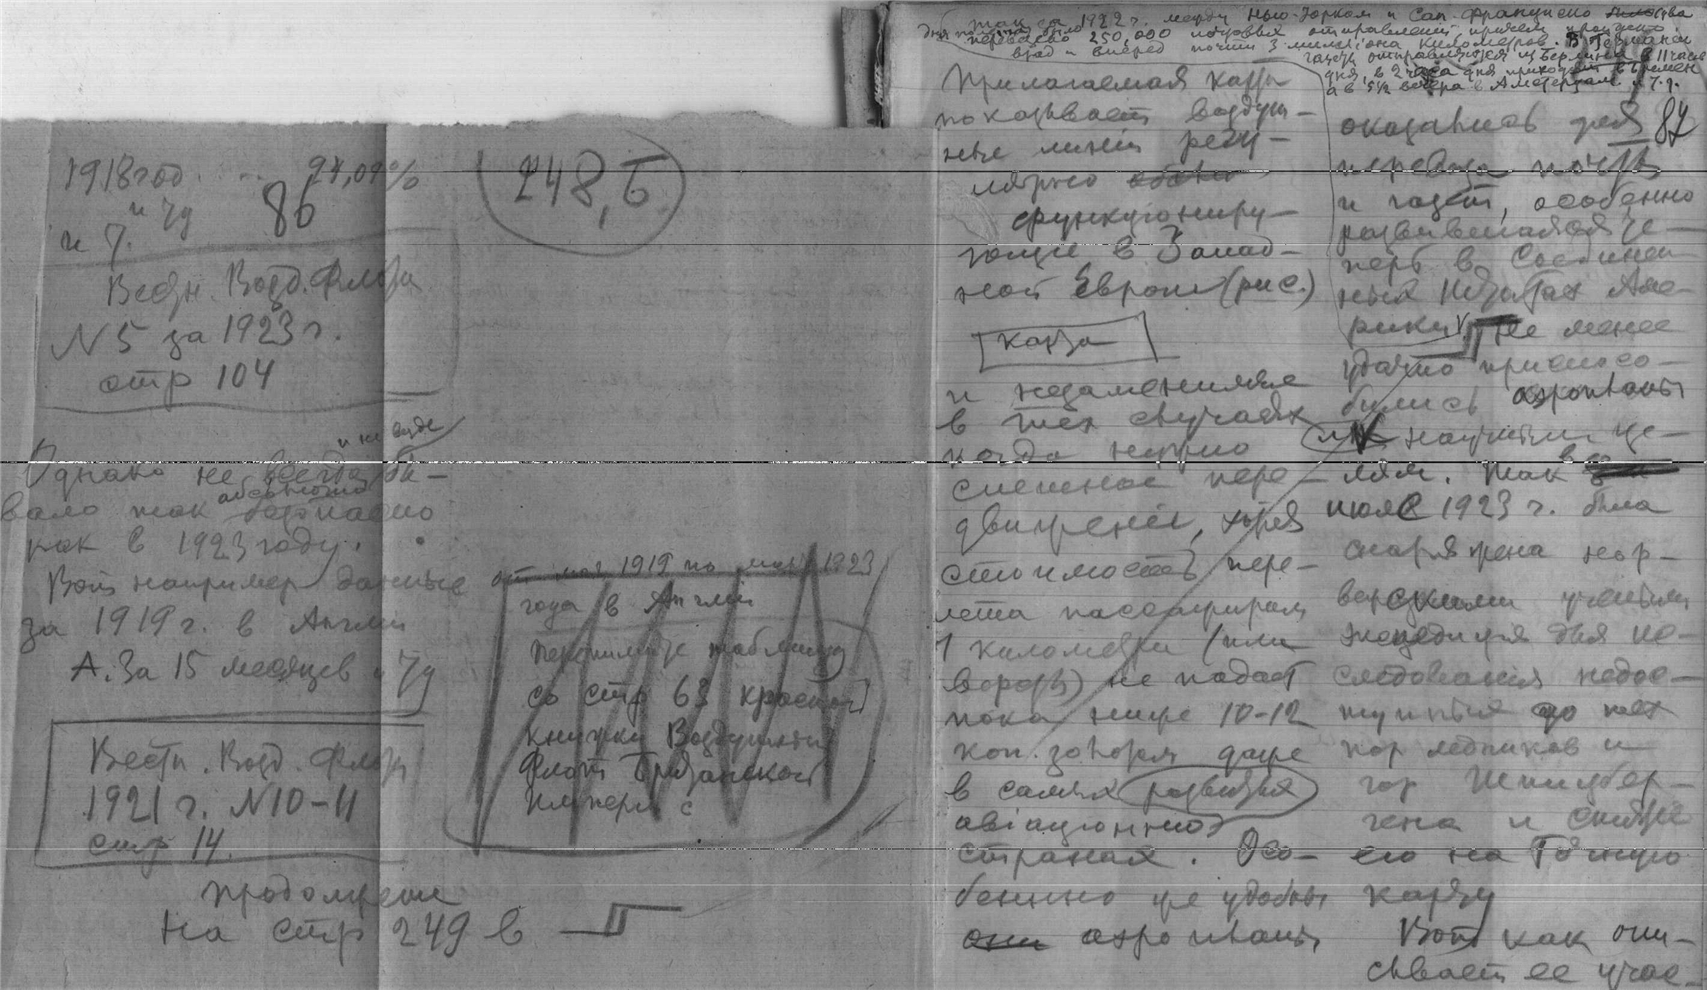 1918 год . . . 94,09%
и чд 86
и т.
Вестн. Возд. Флота
N 5 за 1923 г.
стр 104
и не везде
Однако не всегда бы-
абсолютно
вало так безопасно
как в 1923 году.
Вот например данные
за 1919 г. в Англии
А. За 15 месяцев и чд
Вестн. Возд. Флота
1921 г. N 10-11
стр 14.
продолжение
на стр 249 в
248, б
от мая 1919 по май 1923
года в Англии
Перепишите таблицу
со стр 63 красной
книжки Воздушный
Флот Британской
империи
Так за 1922 г. между Нью-Йорком и Сан-Франциско
перевезено 250,000 почтовых отправлений причем пройдено
взад и вперед почти 3 миллиона километров. В Германии
газеты отправляются из Берлина в 11 часов
дня, в 2 часа дня приходят в Бремен
а в 5½ вечера в Амстердам и т.д.
Прилагаемая карта
показывает воздуш-
ные линии регу-
лярно
функциониру-
ющие в Запад-
ной Европе (рис.)
Карта
и незаменимые
в тех случаях
когда нужно
спешное пере-
движение, хотя
стоимость пере-
лета пассажирам
1 километра (или
версты) не падает
пока ниже 10-12
коп. золотом даже
в самых развитых
авiационно
странах. Осо-
бенно же удобны
они аэропланы
87
оказались для
перевоза почты
и газет, особенно
развившаяся те-
перь в Соединен-
ных Штатах Аме-
рики Не менее
удачно приспосо-
бились аэропланы
и к научным це-
лям. Так в
июле 1923 г. была
снаряжена нор-
вежскими учеными
экспедиция для ис-
следования недос-
тупных до тех
пор ледников и
гор Шпицбер-
гена и снятие
его на точную
карту
Вот как опи-
сывает ее учас-